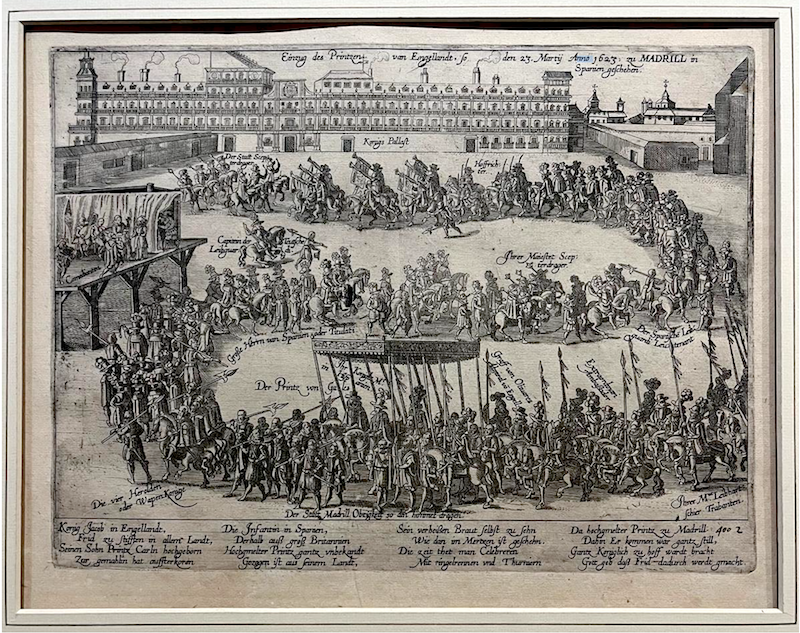 Einzug des Printzen van Engellandt, so den 23. Martij Anno 1623. zu MADRILL in
Spanien geschehen.
Konigs Pallast
Der Statt Scep-
terdrager
Heffrich-
ter.
Capitein der
Leibguar
Spanische
Ihrer Maiestet Scep-
terdrager.
Groste Herren van Spanien
Der Spanische Leib
Guardi Leuchtenant
Der Printz von
Graff von Olivares
Die vier Herolden
oder Wapen Konige
Der Statt Madrill Obrigkeit so den himmel dragen.
Ihrer Mtten Leibhart
schier Trabanten
Konig Jacob in Engellandt,
Frid zu stifften in allem Landt,
Seinen Sohn Printz Carln hochgeborn
Zur gemahlin hat aufserkoren
Die Infantin in Spanien,
Derhalb aufs groß Britannien
Hochgmelter Printz gantz vnbekandt
Gezogen ist aus seinem Landt,
Sein verheißen Braut selbst zu sehn
Wie dan im Mertzen ist geschehn.
Die zeit thet man Celebreren
Mit ringelrennen vnd Thurnieren
Da hochgmelter Printz zu Madrill. 400 2
Dahin Er kommen war gantz still,
Gantz Koniglich zu hoff wardt bracht
Gott geb daß Frid dadurch werdt gmacht.